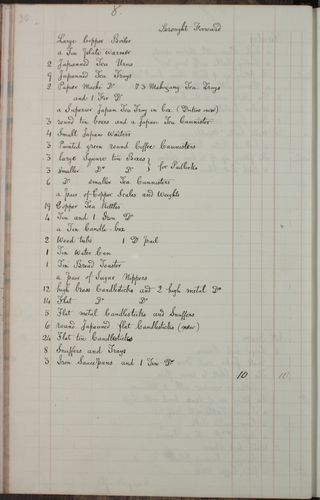 8.
Brought Forward
Large Copper Boiler
a Tin Plate Warmer
2 Japanned Tea Urns
9 Japanned Tea Trays
2 Paper Machi Do 73 Mahogany Tea Trays
and 1 Fir Do
a Superior Japan Tea Tray in box (Duties now)
3 round tin boxes and a Japan Tea Cannister
4 Small Japan Waiters
3 Painted green round Coffee Cannisters
3 Large Square tin Boxes }
3 Smaller Do Do } for
6 Do smaller Tea Cannisters
a pair of Copper Scales and Weights
19 Copper Tea Kettles
4 Tin and 1 Iron Do
a Tin Candle box
2 Wood tubs 1 Do pail
1 Tin Water Can
1 Tin Bread Toaster
a pair of Sugar Nippers
12 high Brass Candlesticks and 2 high metal Do
14 Flat Do Do
5 Flat metal Candlesticks and Snuffers
6 round Japanned flat Candlesticks (new)
24 Flat tin Candlesticks
8 Snuffers and Trays
3 Iron Saucepans and 1 Tin Do
10 10